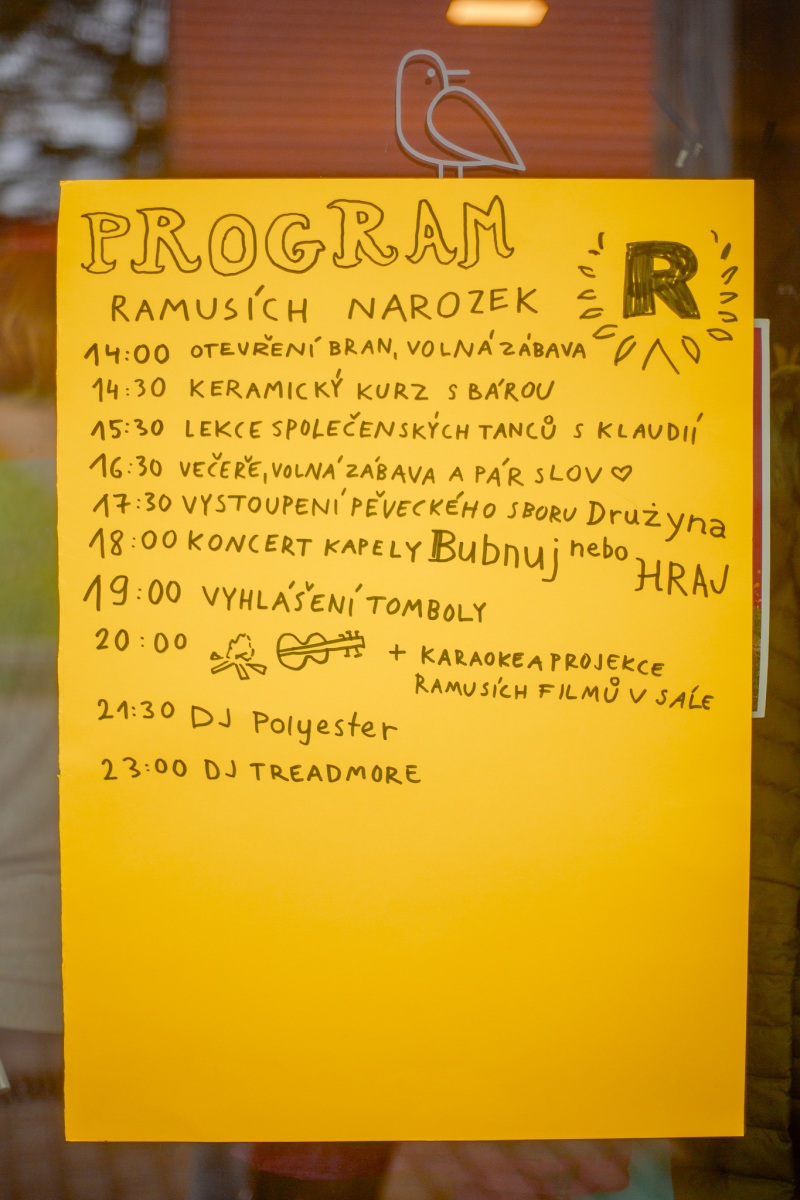 PROGRAM
R
RAMUSÍCH NAROZEK
14:00 OTEVŘENÍ BRAN, VOLNÁ ZÁBAVA
14:30 KERAMICKÝ KURZ S BÁROU
15:30 LEKCE SPOLEČENSKÝCH TANCŮ S KLAUDIÍ
16:30 VEČEŘE, VOLNÁ ZÁBAVA A PÁR SLOV ♡
17:30 VYSTOUPENÍ PĚVECKÉHO SBORU Družyna
18:00 KONCERT KAPELY Bubnuj nebo HRAJ
19:00 VYHLÁŠENÍ TOMBOLY
20:00 + KARAOKE A PROJEKCE
RAMUSÍCH FILMŮ V SÁLE
21:30 DJ Polyester
23:00 DJ TREADMORE